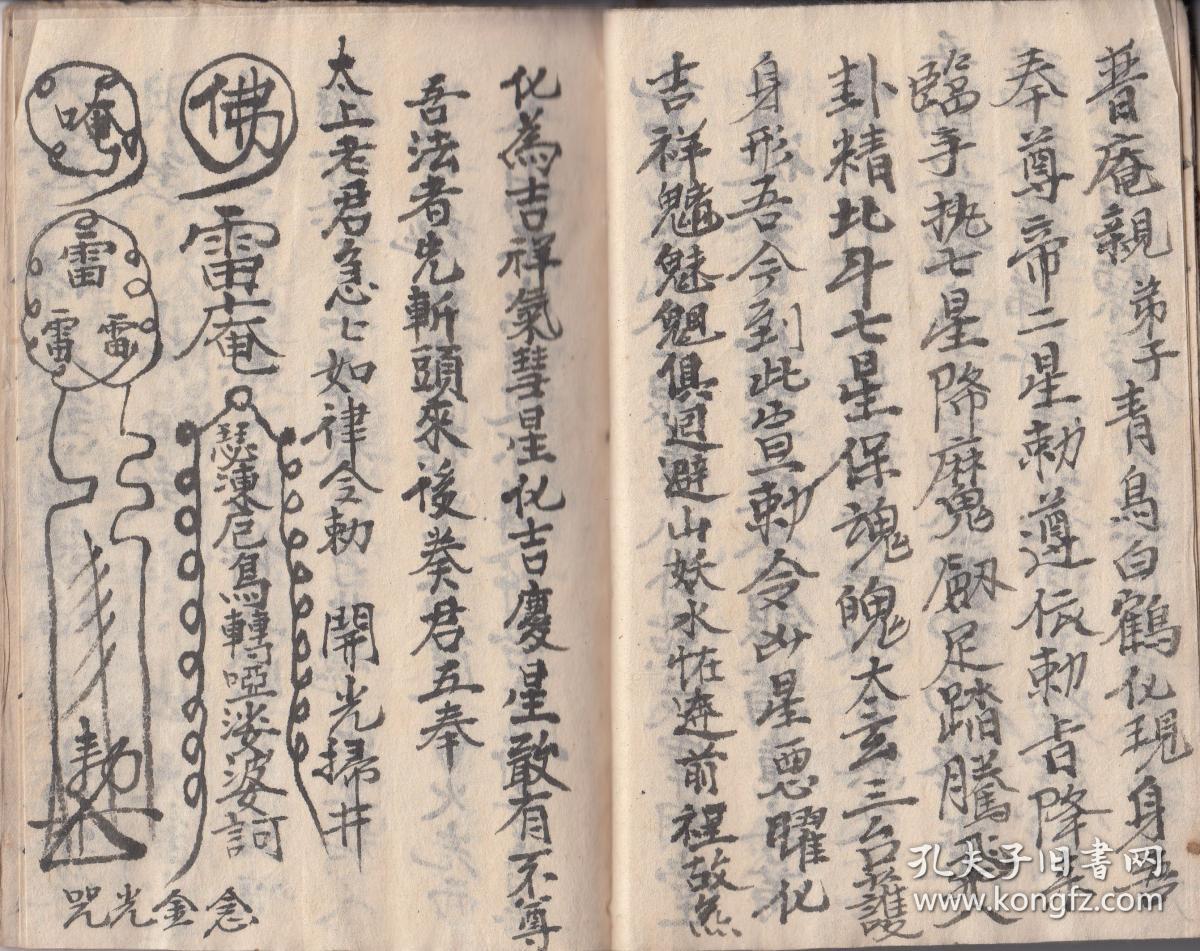 普庵親弟子青鳥白鶴化現身
奉尊帝二星勅遵依勅旨降
臨手执七星降麻鬼劔足踏騰
卦精北斗七星保魂魄太玄三台護
身形吾今到此宣勅令凶星恶曜化
吉祥魑魅魍俱迴避山妖水怪遠前程故
化為吉祥氣彗星化吉慶星敢有不尊
吾法者先斬頭來後葵君五奉
太上老君急〻如律令勅 開光掃井
佛
雷庵
瑟爹轉啞娑婆訶
唵
雷
雷雷
勅
念金光咒
孔夫子旧书网
www.kongfz.com